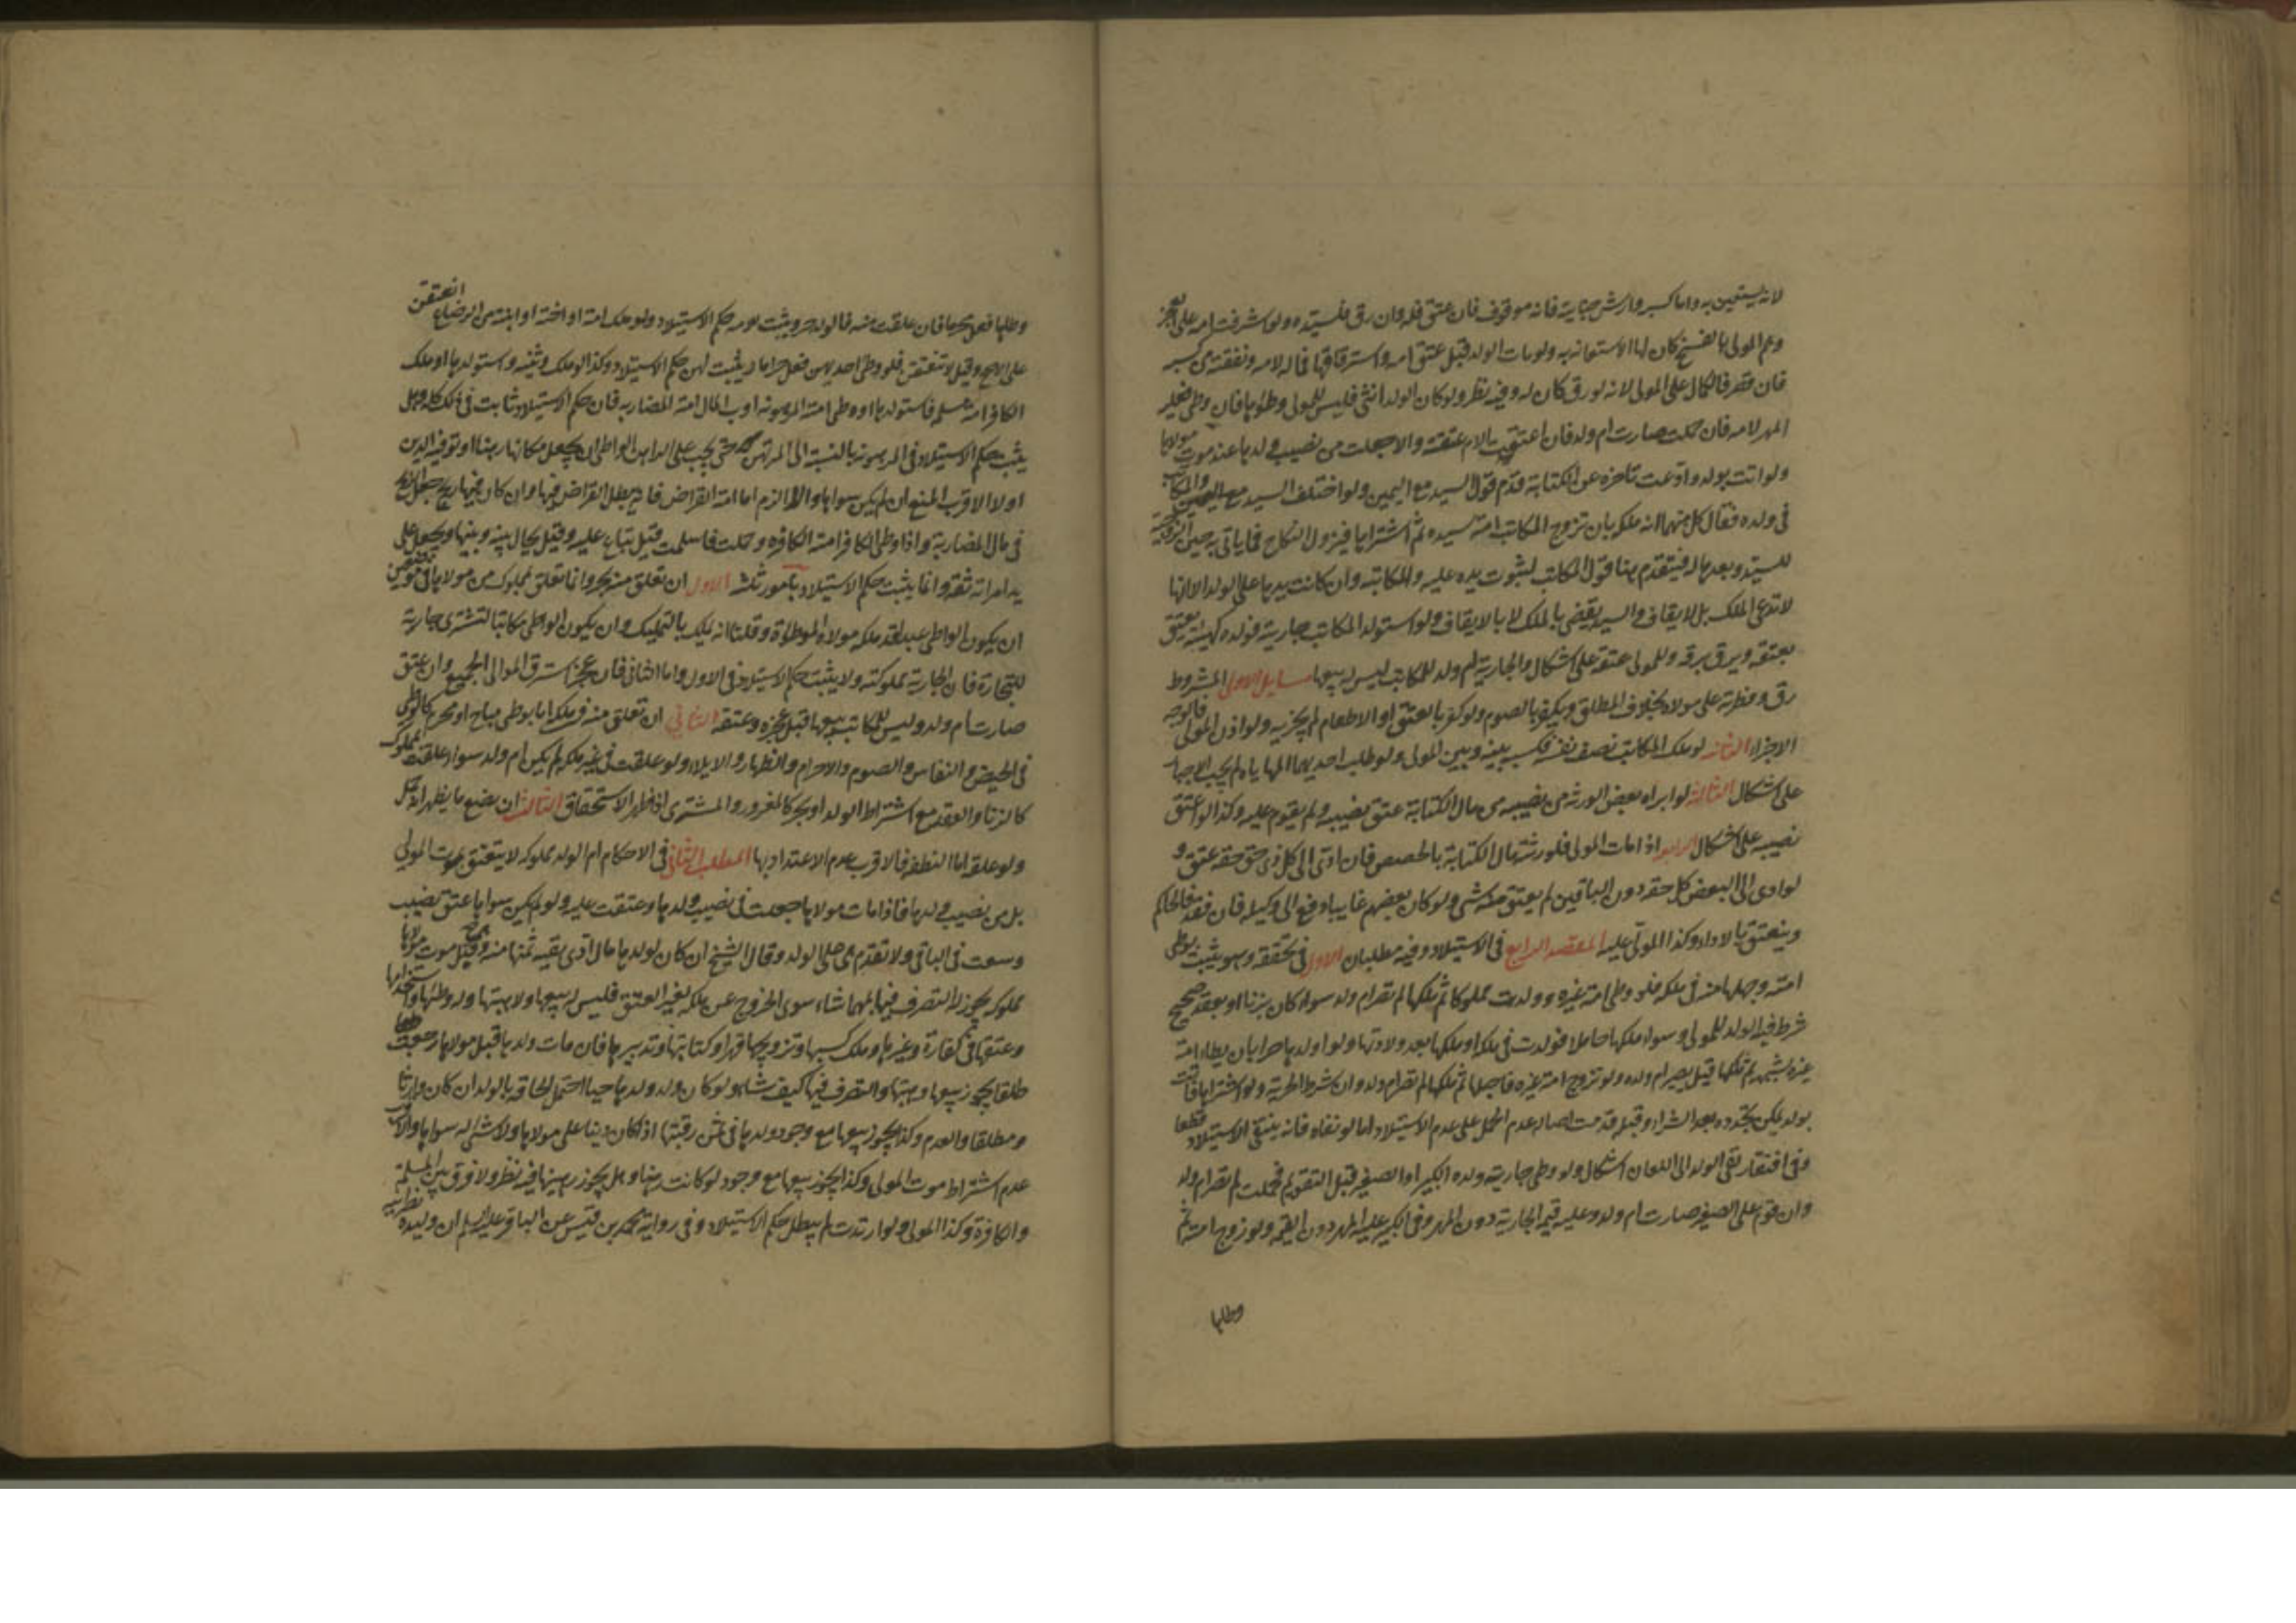 لانه يستعين به واما كسبه وارش جناية فانه موقوف فان عتق فله وان رق فلسيده ولو اشرفت امه على العجز
وعم المولى بالفسخ كان لها الاستعانة به ولو مات الولد قبل عتق امه واسترقاقها فماله لامه ونفقته من كسبه
فان قصر فالكمال على المولى لانه لو رق كان له وفيه نظر ولو كان الولد انثى فليس للمولى وطؤها فان وطئ فعليه
المهر لامه فان حملت صارت ام ولد فان اعتقت بالام عتقت والا جعلت من نصيب ولدها عند موت مولاها
ولو اتت بولد وادعت تاخره عن الكتابة قدم قول السيد مع اليمين ولو اختلف السيد والمكاتب
فى ولده فقال كل منهما انه ملكه بان تزوج المكاتب امة سيده ثم اشتراها فيزول النكاح فما ياتى به حين الزوجية
للسيد وبعدها له فيتقدم هنا قول المكاتب لثبوت يده عليه والمكاتبة وان كانت يدها على الولد الا انها
لا تدعى الملك بل الايقاف واليد يقضى بالملك لا بالايقاف ولو استولد المكاتب جاريته فولده كهيئته يعتق
بعتقه ويرق برقه وللمولى عتقه على اشكال والجارية ام ولد للمكاتب ليس له بيعها مسايل الاولى المشروط
رق وفطرته على مولاه بخلاف المطلق ويكفر بالصوم ولو كفر بالعتق او الاطعام لم يجزيه ولو اذن المولى فالوجه
الاجزاء الثانية لو ملك المكاتب نصف نفسه فكسبه بينه وبين المولى ولو طلب احدهما المهاياه لم يجب الاجبار
على اشكال الثالثة لو ابراه بعض الورثه من نصيبه من مال الكتابة عتق نصيبه ولم يقوم عليه وكذا لو اعتق
نصيبه على اشكال الرابعة اذا مات المولى فلورثته مال الكتابة بالحصص فان ادى الى كل ذى حق حقه عتق و
لو ادى الى البعض كل حقه دون الباقين لم يعتق منه شى ولو كان بعضهم غايبا دفع الى وكيله فان فقد فالحاكم
وينعتق بالاداء وكذا المولى عليه المقصد الرابع فى الاستيلاد وفيه مطلبان الاول فى تحققه وهو يثبت بوطى
امته وحبلها منه فى ملكه فلو وطى امة غيره وولدت مملوكا ثم ملكها لم تصر ام ولد سواء كان بزنا او بعقد صحيح
شرط فيه الولد للمولى او سواء ملكها حاملا فولدت فى ملكه او ملكها بعد ولادتها ولو اولدها حرا بان يطا امة
غيره بشبهه ثم تملكها قيل يصير ام ولده ولو تزوج امة غيره فاحبلها ثم ملكها لم تصر ام ولد وان شرط الحرية ولو اشتراها فاتت
بولد يمكن تجدده بعد الشراء وقبله قدمت اصالة عدم الحمل على عدم الاستيلاد اما لو نفاه فانه ينتفى الاستيلاد قطعا
وفى افتقار نفى الولد الى اللعان اشكال ولو وطى جارية ولده الكبير او الصغير قبل التقويم فحملت لم تصر ام ولد
وان قوم على الصغير صارت ام ولد وعليه قيمة الجارية دون المهر وفى الكبير عليه المهر دون القيمة ولو زوج امته ثم
وطئها
وطئها فعل محرما فان علقت منه فالولد حر ويثبت لامه حكم الاستيلاد ولو ملك امه او اخته او ابنته من الرضاع انعتقن
على الاصح وقيل لا تنعتق فلو وطئ احديهن فعل حراما ويثبت لهن حكم الاستيلاد وكذا لو ملك وثنيه واستولدها او ملك
الكافر امة مسلمة فاستولدها او وطى امته المرهونه او رب المال امة المضاربه فان حكم الاستيلاد ثابت فى ذلك كله وهل
يثبت حكم الاستيلاد فى المرهونه بالنسبة الى المرتهن حتى يجب على الراهن الواطى ان يجعل مكانها رهنا او توفيه الدين
اولا الاقرب المنع ان لم يكن سواها والا الزم اما امة القراض فانه يبطل القراض فيها وان كان فيها ربح جعل الربح
فى مال المضاربة واذا وطئ الكافر امته الكافره وحملت فاسلمت قيل تباع عليه وقيل يحال بينه وبينها ويجعل على
يد امراة ثقة وانما يثبت حكم الاستيلاد بامور ثلثة الاول ان تعلق منه بحر وانما تعلق بمملوك من مولاها فى موضعين
ان يكون الواطى عبدا قد ملكه مولاه الموطوءة وقلنا انه يملك بالتمليك وان يكون الواطى مكاتبا اشترى جارية
للتجارة فان الجارية مملوكته ولا يثبت حكم الاستيلاد فى الاول واما الثانى فان عجز استرق المولى الجميع وان عتق
صارت ام ولد وليس للمكاتب بيعها قبل عجزه وعتقه الثانى ان تعلق منه فى ملكه اما بوطى مباح او محرم كالوطى
فى الحيض والنفاس والصوم والاحرام والظهار والايلاء ولو علقت فى غير ملكه لم يكن ام ولد سواء علقت بمملوك
كالزنا والعقد مع اشتراط الولد او بحر كالمغرور والمشترى اذا ظهر الاستحقاق الثالث ان يضع ما يظهر انه حمل
ولو علقة اما النطفة فالاقرب عدم الاعتداد بها المطلب الثانى فى الاحكام ام الولد مملوكه لا ينعتق بموت المولى
بل من نصيب ولدها فاذا مات مولاها جعلت فى نصيب ولدها وعتقت عليه ولو لم يكن سواها عتق نصيب
وسعت فى الباقى ولا تقدم على الولد وقال الشيخ ان كان لولدها مال ادى بقية ثمنها منه وقيل موت مولاها
مملوكه يجوز له التصرف فيها بمهما شاء سوى الخروج عن ملكه بغير العتق فليس له بيعها ولا هبتها وله وطئها واستخدامها
وعتقها فى كفارة وغيرها وملك كسبها وتزويجها قهرا وكتابتها وتدبيرها فان مات ولدها قبل مولاها رجعت
طلقا يجوز بيعها وهبتها والتصرف فيها كيف شاء ولو كان ولد ولدها حيا احتمل الحاقه بالولد ان كان وارثا
ومطلقا والعدم وكذا يجوز بيعها مع وجود ولدها فى ثمن رقبتها اذا كان دينا على مولاها ولا شى له سواها والاقرب
عدم اشتراط موت المولى وكذا يجوز بيعها مع وجوده لو كانت رهنا وهل يجوز رهنها فيه نظر ولا فرق بين المسلمة
والكافرة وكذا المولى ولو ارتدت لم يبطل حكم الاستيلاد وفى رواية محمد بن قيس عن الباقر عليه السلم ان وليدة نصرانيه